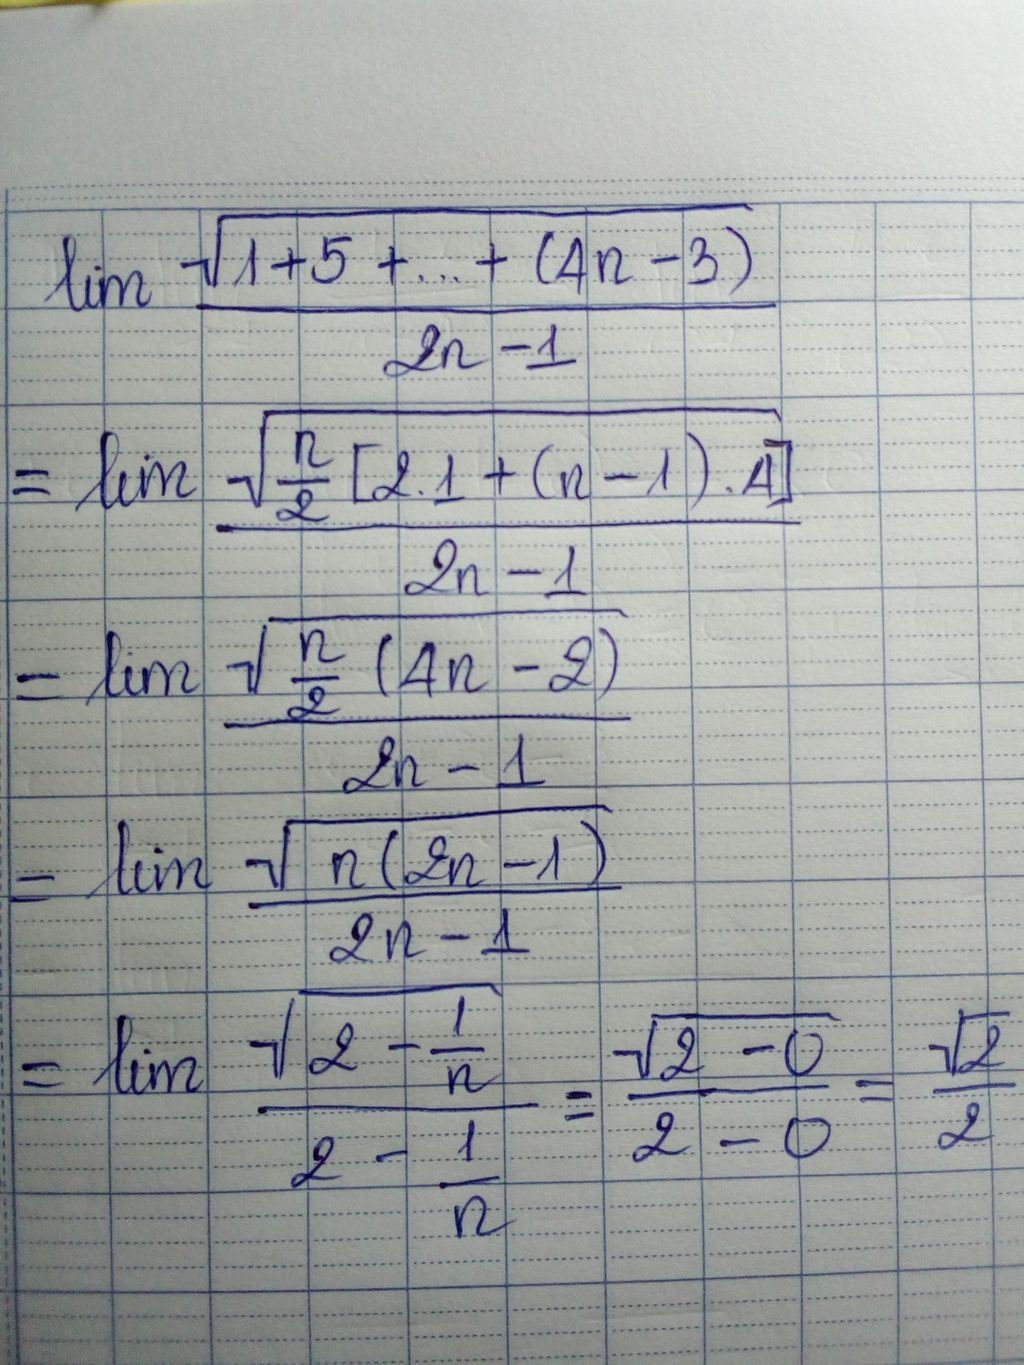 lim √(1+5+...+(4n-3)) / (2n-1)
= lim √(n/2 [2.1+(n-1).4]) / (2n-1)
= lim √(n/2 (4n-2)) / (2n-1)
= lim √(n(2n-1)) / (2n-1)
= lim √(2 - 1/n) / (2 - 1/n) = √(2-0) / (2-0) = √2 / 2